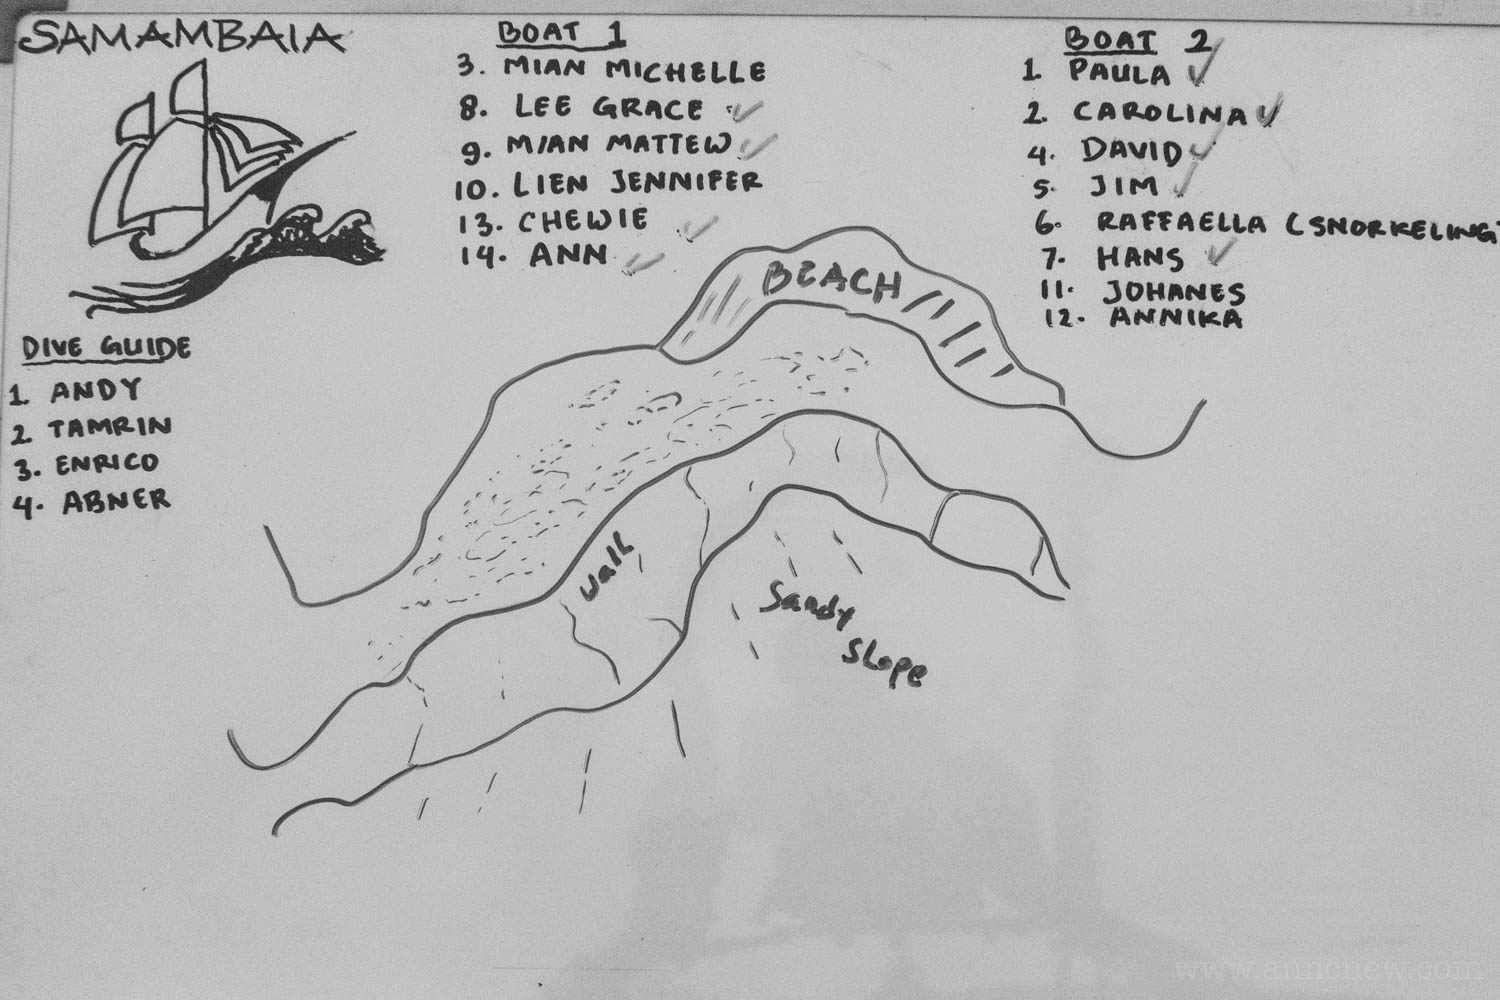 SAMAMBAIA
BOAT 1
3. MIAN MICHELLE
8. LEE GRACE
9. MIAN MATTEW
10. LIEN JENNIFER
13. CHEWIE
14. ANN
BOAT 2
1 PAULA
2. CAROLINA
4. DAVID
5. JIM
6. RAFFAELLA (SNORKELING
7. HANS
11. JOHANES
12. ANNIKA
DIVE GUIDE
1. ANDY
2 TAMRIN
3. ENRICO
4. ABNER
BEACH
Wall
Sandy
Slope
www.annchew.com